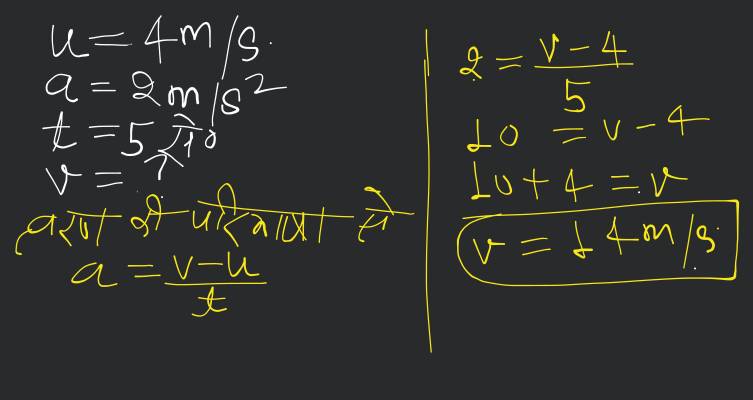 u = 4m/s.
a = 2m/s²
t = 5 से०
v = ?
त्वरण की परिभाषा से
a = v-u/t
2 = v-4/5
10 = v-4
10+4 = v
v = 14m/s